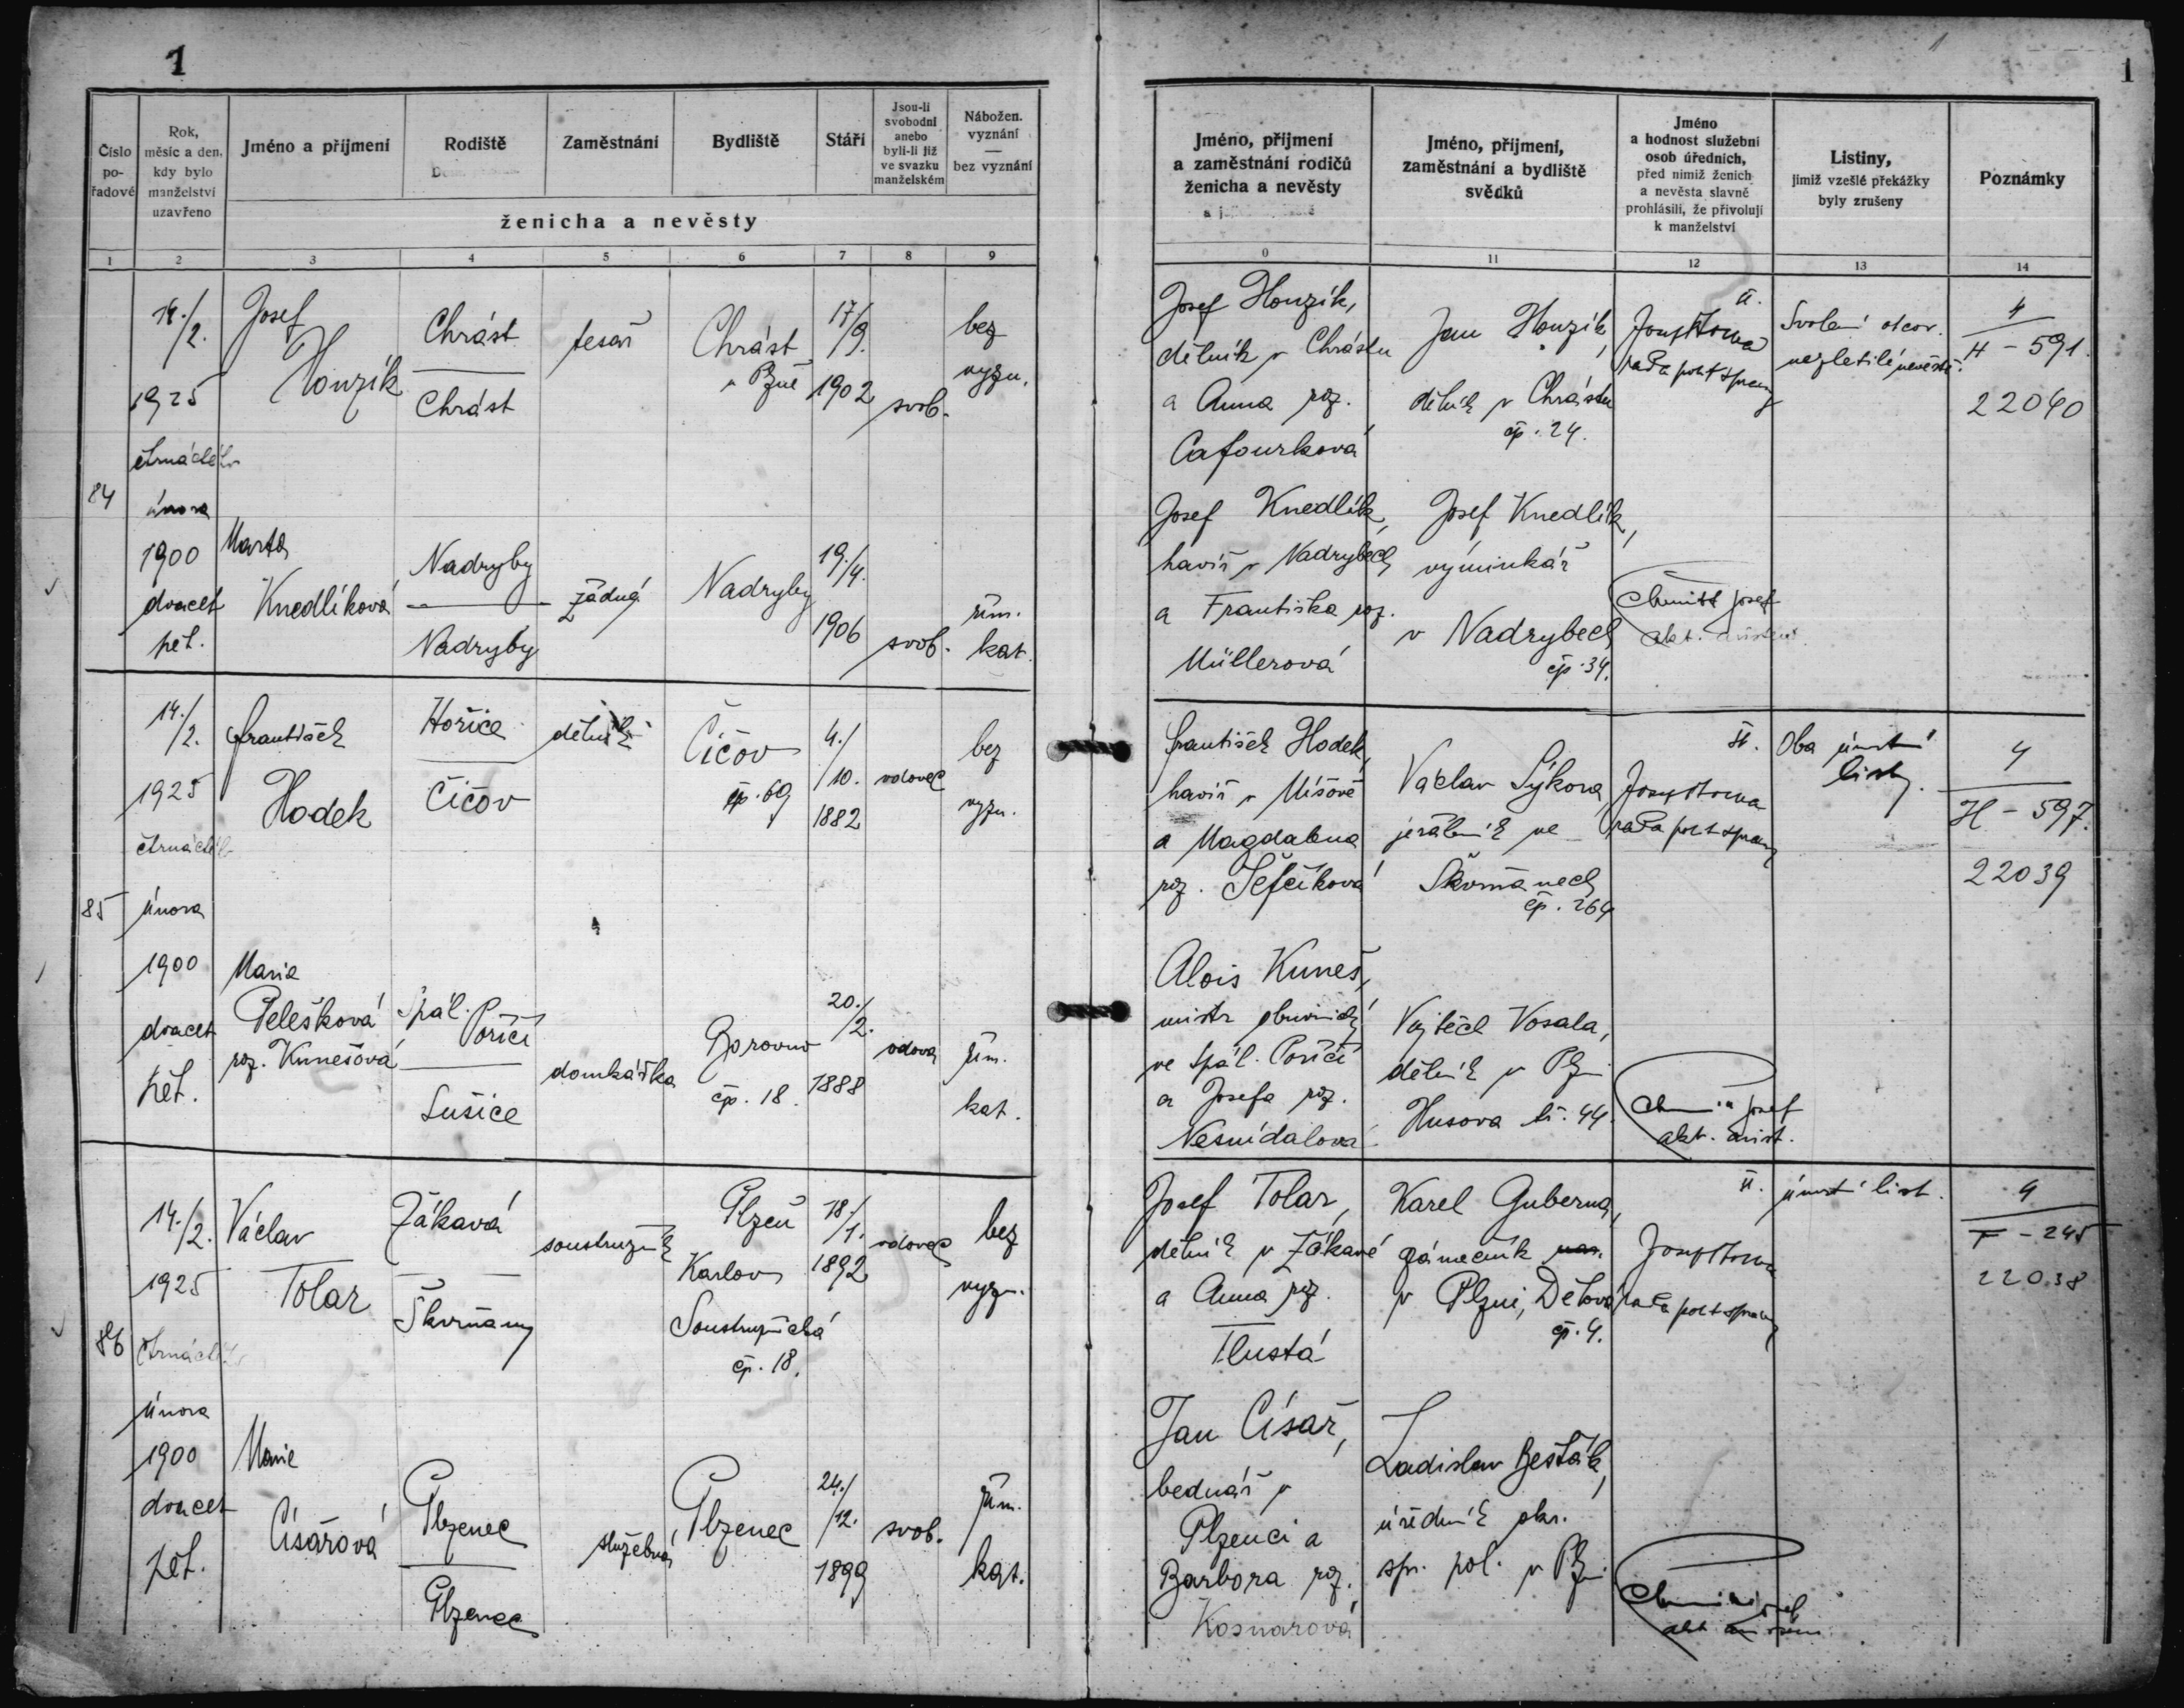 1
1
1
Číslo pořadové
Rok, měsíc a den, kdy bylo manželství uzavřeno
Jméno a příjmení
Rodiště
Zaměstnání
Bydliště
Stáří
Jsou-li svobodni anebo byli-li již ve svazku manželském
Nábožen. vyznání — bez vyznání
ženicha a nevěsty
Jméno, příjmení a zaměstnání rodičů ženicha a nevěsty
Jméno, příjmení, zaměstnání a bydliště svědků
Jméno a hodnost služební osob úředních, před nimiž ženich a nevěsta slavně prohlásili, že přivolují k manželství
Listiny, jimiž vzešlé překážky byly zrušeny
Poznámky
1 2 3 4 5 6 7 8 9
0 11 12 13 14
84
14./2.
1925
čtrnáctého
února
1900
dvacet
pět.
Josef
Honzík
Chrást
Chrást
tesař
Chrást
u Plzně
17/9.
1902
svob.
bez
vyzn.
Josef Honzík,
dělník v Chrástu
a Anna roz.
Cafourková
Jan Honzík,
dělník v Chrástu
čp. 24.
rada polit správy
Svolení otcov.
nezletilé nevěstě.
4
H - 591.
22040
Marta
Knedlíková
Nadryby
Nadryby
žádné
Nadryby
19./4.
1906
svob.
řím.
kat.
Josef Knedlík,
havíř v Nadrybech
a Františka roz.
Müllerová
Josef Knedlík,
výminkář
v Nadrybech
čp. 34.
Josef
akt.
85
14./2.
1925
čtrnáctého
února
1900
dvacet
pět.
František
Hodek
Hořice
Čičov
dělník
Čičov
čp. 69
4./10.
1882
vdovec
bez
vyzn.
František Hodek,
havíř v Míšově
a Magdalena
roz. Šefčíková
Václav Sýkora,
jeřábník ve
Škvrňanech
čp. 264
rada polit správy
Oba úmrtní
listy.
4
H - 597.
22039
Marie
Pelešková
roz. Kunešová
Spál. Poříčí
Sušice
domkářka
Borovno
čp. 18.
20./2.
1888
vdova
řím.
kat.
Alois Kuneš,
mistr obuvnický
ve Spál. Poříčí
a Josefa roz.
Nesnídalová
Vojtěch Vosala,
dělník v Plzni
Husova tř. 44.
Josef
akt.
86
14./2.
1925
čtrnáctého
února
1900
dvacet
pět.
Václav
Tolar
Žákavá
Škvrňany
soustružník
Plzeň
Karlov
Soustružnická
čp. 18.
18./1.
1892
vdovec
bez
vyzn.
Josef Tolar,
dělník v Žákavé
a Anna roz.
Tlustá
Karel Guberna,
zámečník
v Plzni, Dělová
čp. 4.
rada polit správy
úmrtní list.
4
T - 245
22038
Marie
Císařová
Plzenec
Plzenec
služebná
Plzenec
24./12.
1899
svob.
řím.
kat.
Jan Císař,
bednář v
Plzenci a
Barbora roz.
Kosnarová
Ladislav Bešták,
úředník okr.
spr. pol. v Plzni
Josef
akt.